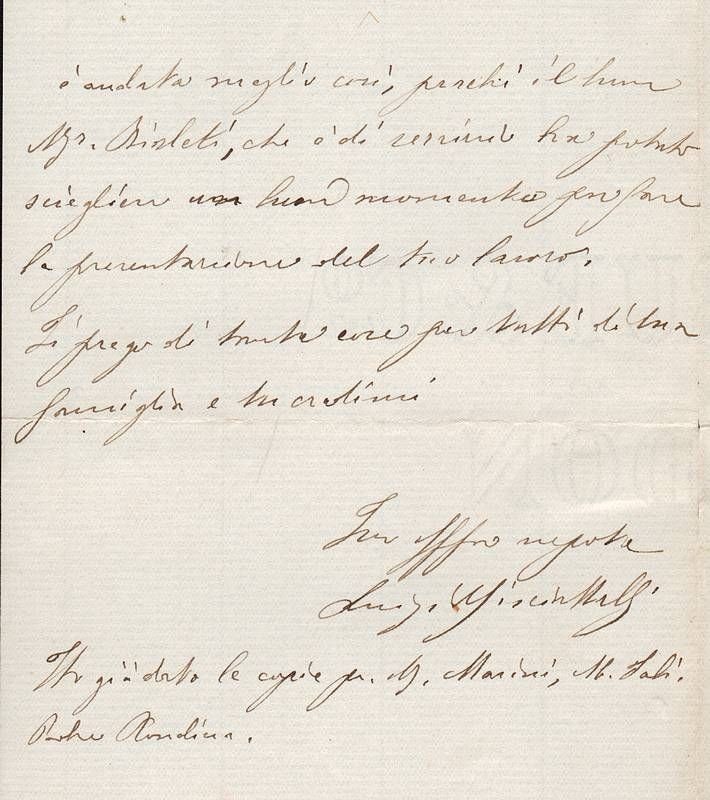 è andata meglio così, perchè il buon
Mgr. Bisleti, che è di servizio ha potuto
sciegliere un buon momento per fare
la presentazione del tuo lavoro.
Ti prego di tante cose per tutti di tua
famiglia e tu credimi
Tuo affmo nepote
Luigi Misciattelli
Ho già dato le copie per M. Marini, M.
Padre Rondina.